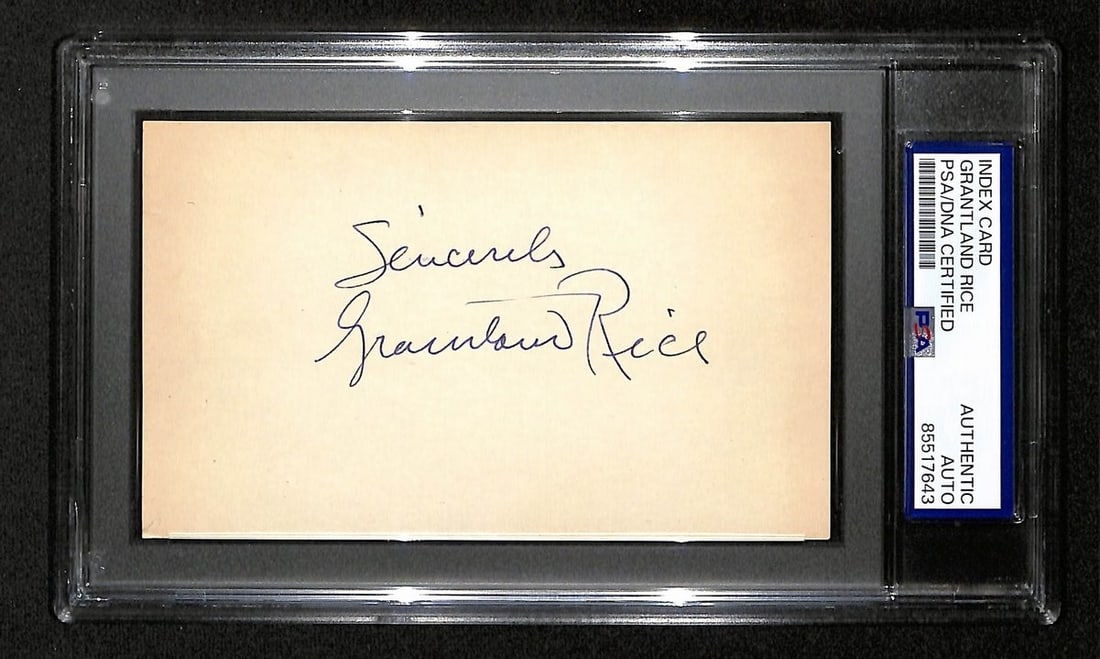 Sincerely
Grantland Rice
INDEX CARD
GRANTLAND RICE
PSA/DNA CERTIFIED
PSA
AUTHENTIC
AUTO
85517643